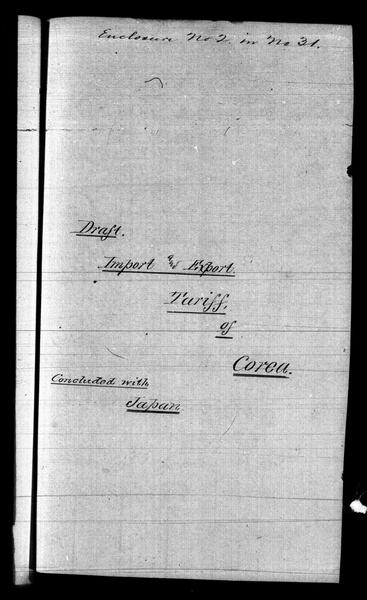 Enclosure No 2. in No 31.
Draft.
Import and Export
Tariff,
of
Corea.
Concluded with
Japan